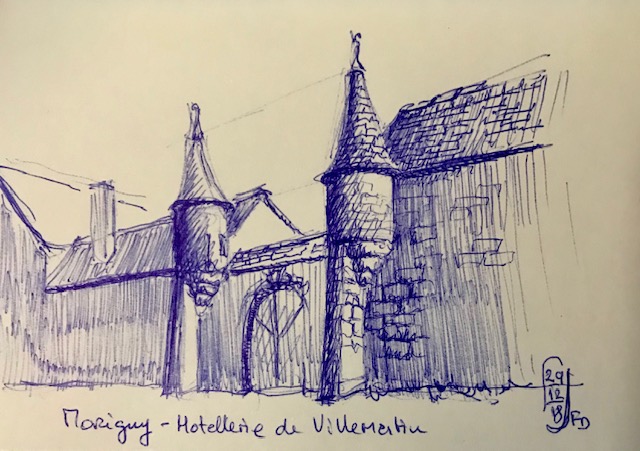 Morigny - Hotellerie de Villemartin
29
12
18
FD